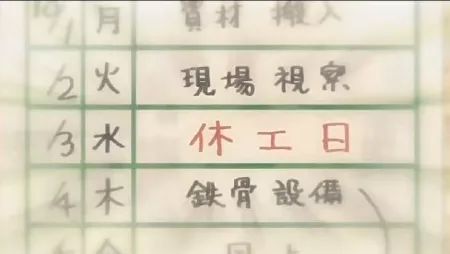 10/1 月 資材搬入
/2 火 現場視察
/3 水 休工日
/4 木 鉄骨設備
金